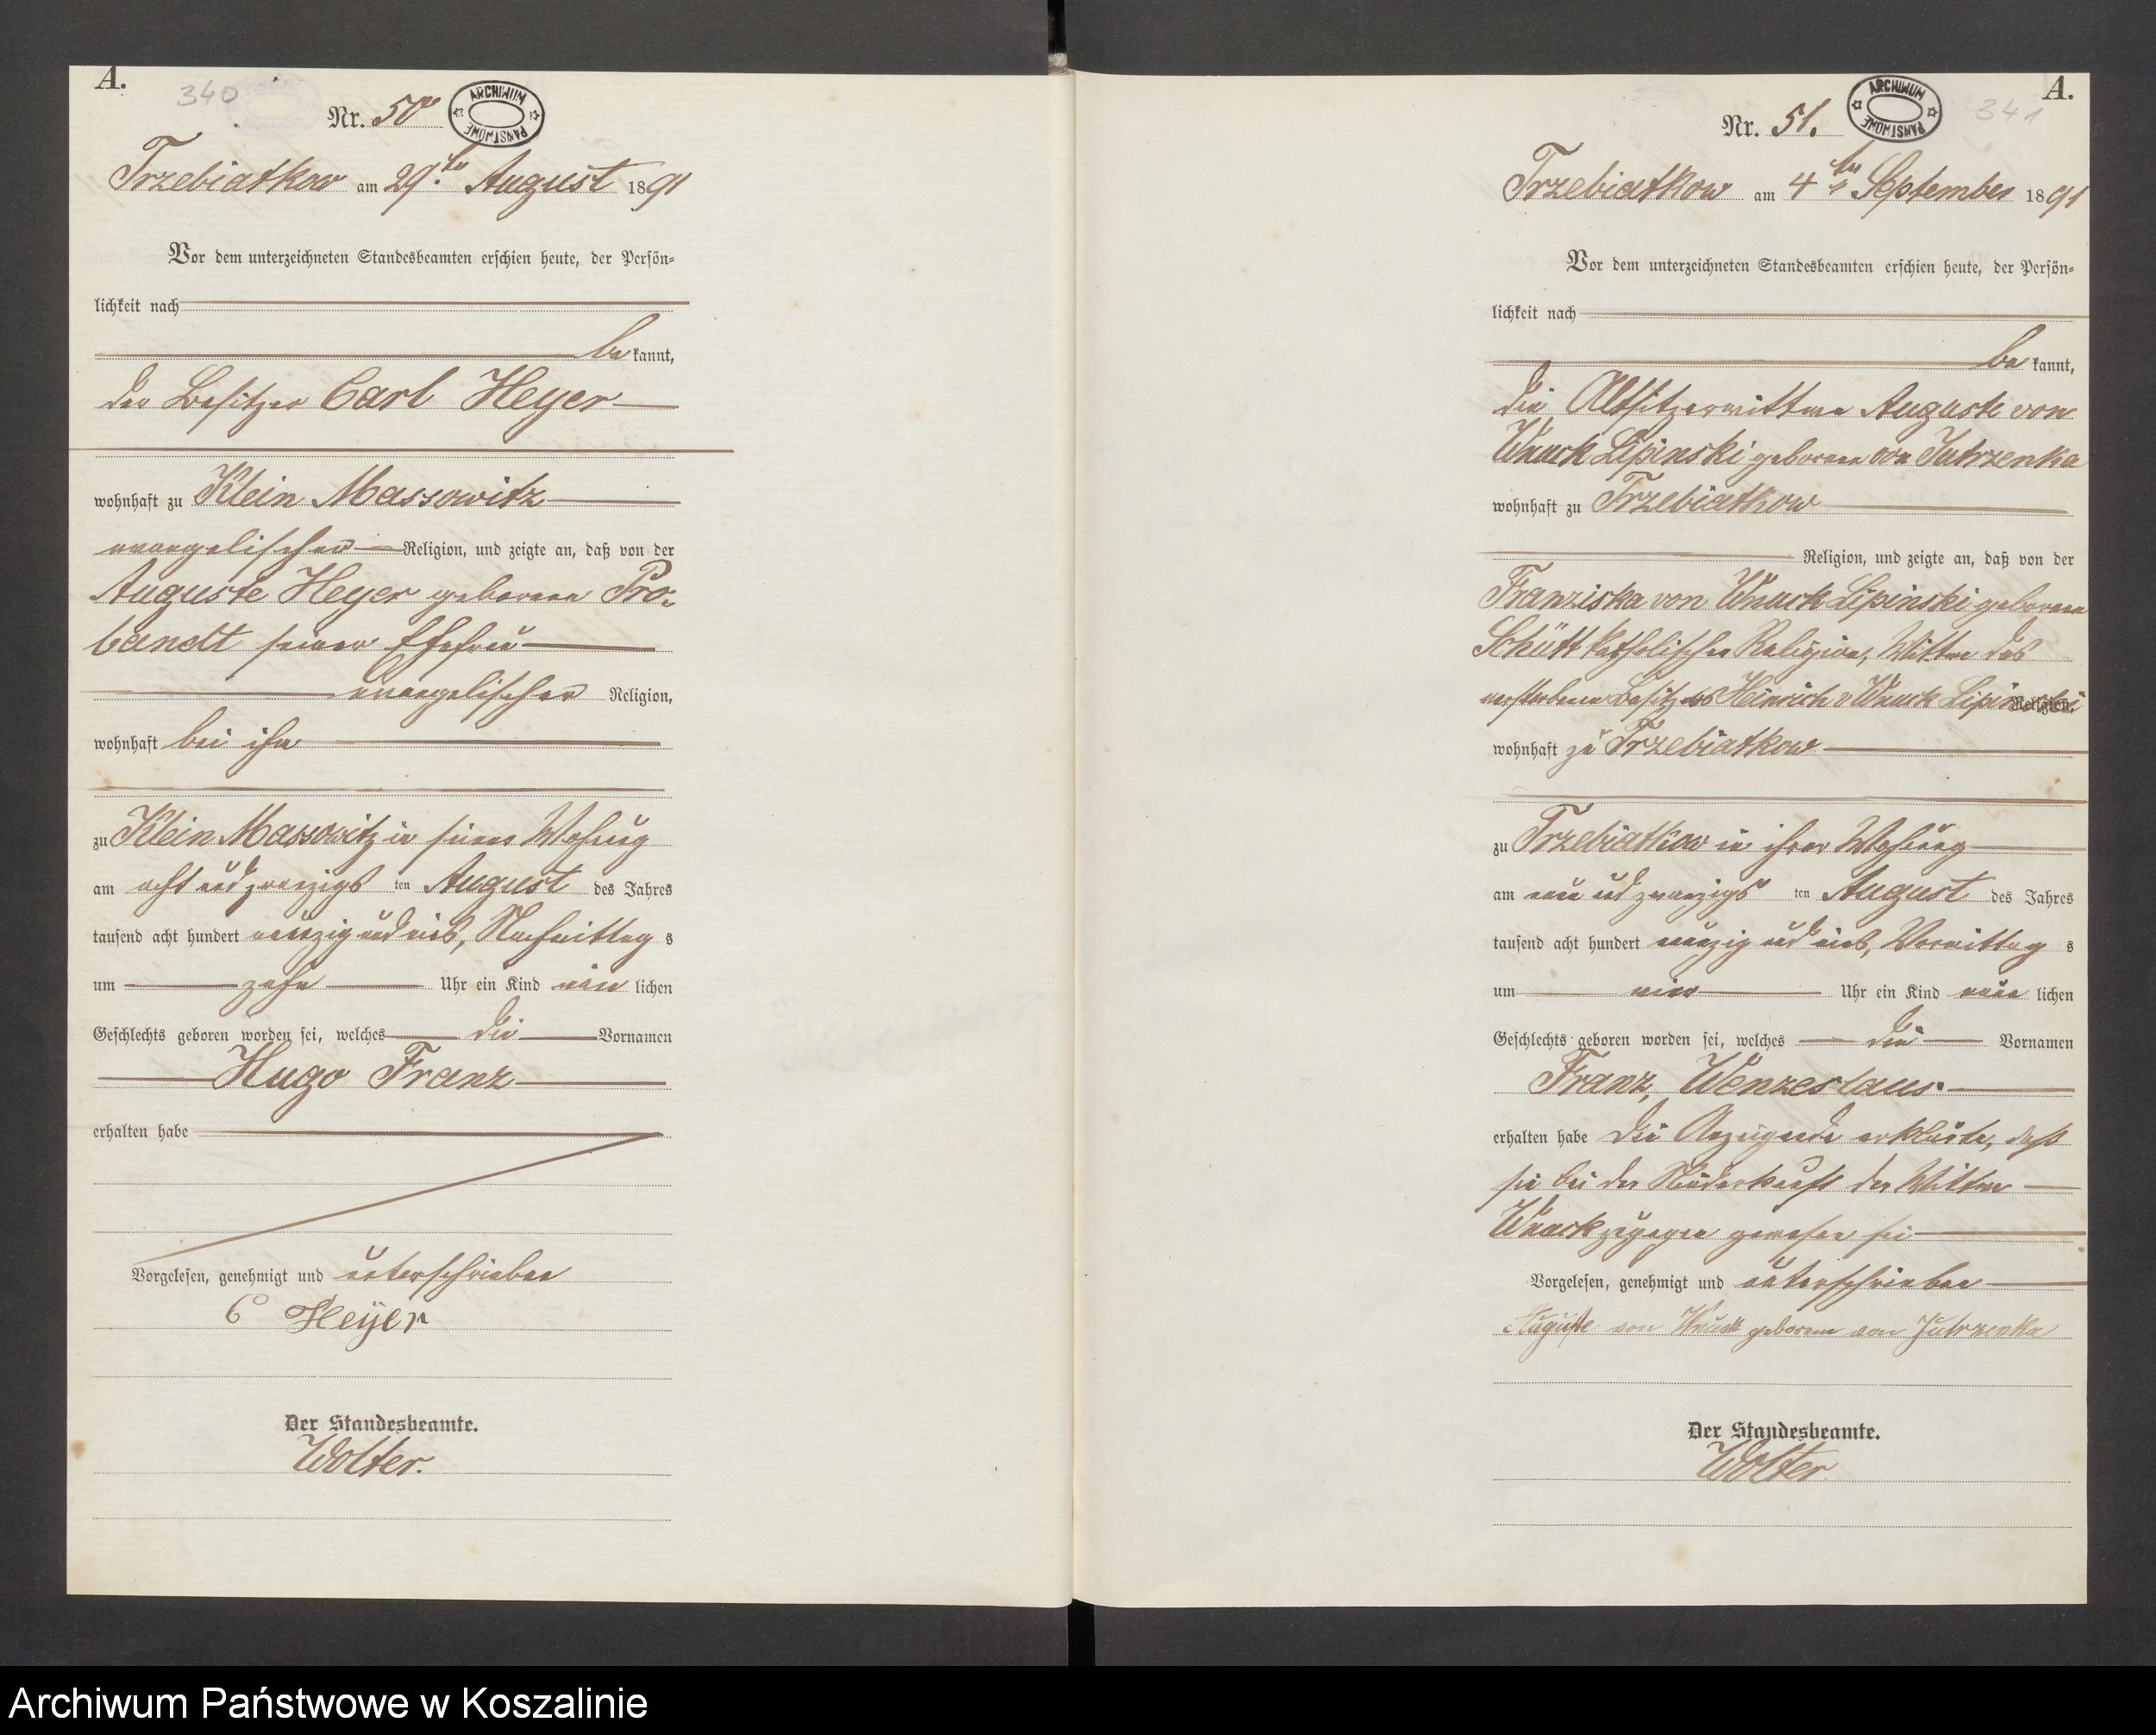 A.
340
Nr. 50
ARCHIWUM PAŃSTWOWE
Trzebiatkow am 29.ten August 1891
Vor dem unterzeichneten Standesbeamten erschien heute, der Persön-
lichkeit nach
be kannt,
der Besitzer Carl Heyer
wohnhaft zu Klein Massowitz
evangelischer Religion, und zeigte an, daß von der
Auguste Heyer geborene Pro-
bandt seiner Ehefrau
evangelischer Religion,
wohnhaft bei ihm
zu Klein Massowitz in seiner Wohnung
am acht und zwanzigs ten August des Jahres
tausend acht hundert neunzig und eins, Nachmittag s
um zehn Uhr ein Kind männ lichen
Geschlechts geboren worden sei, welches die Vornamen
Hugo Franz
erhalten habe
Vorgelesen, genehmigt und unterschrieben
C Heÿer
Der Standesbeamte.
Wolter.
A.
341
Nr. 51.
ARCHIWUM PAŃSTWOWE
Trzebiatkow am 4ten September 1891
Vor dem unterzeichneten Standesbeamten erschien heute, der Persön-
lichkeit nach
be kannt,
die Altsitzerwittwe Auguste von
Wnuck Lipinski geborene von Jutrzenka
wohnhaft zu Trzebiatkow
Religion, und zeigte an, daß von der
Franziska von Wnuck Lipinski geborene
Schütt katholischer Religion, Wittwe des
verstorbenen Besitzers Heinrich v Wnuck Lipinski Religion,
wohnhaft zu Trzebiatkow
zu Trzebiatkow in ihrer Wohnung
am neun und zwanzigs ten August des Jahres
tausend acht hundert neunzig und eins, Vormittag s
um vier Uhr ein Kind männ lichen
Geschlechts geboren worden sei, welches die Vornamen
Franz, Wenzeslaus
erhalten habe Die Anzeigende erklärte, daß
sie bei der Niederkunft der Wittwe
Wnuck zugegen gewesen sei
Vorgelesen, genehmigt und unterschrieben
Auguste von Wnuck geborene von Jutrzenka
Der Standesbeamte.
Wolter
Archiwum Państwowe w Koszalinie